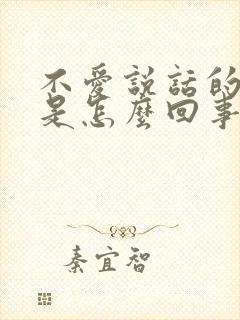 不愛説話的
是怎麼回事
秦宜智